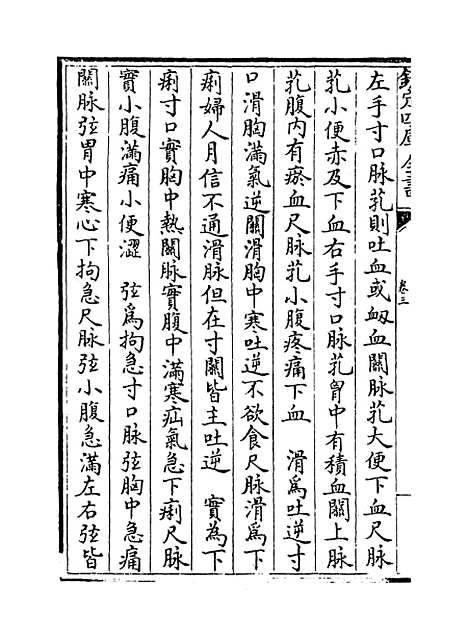 欽定四庫全書
卷三
左手寸口脉芤則吐血或衂血關脉芤大便下血尺脉
芤小便赤及下血右手寸口脉芤胷中有積血關上脉
芤腹内有瘀血尺脉芤小腹疼痛下血　滑爲吐逆寸
口滑胸滿氣逆關滑胸中寒吐逆不欲食尺脉滑爲下
痢婦人月信不通滑脉但在寸關皆主吐逆　實為下
痢寸口實胸中熱關脉實腹中滿寒疝氣急下痢尺脉
實小腹滿痛小便澀　弦爲拘急寸口脉弦胸中急痛
關脉弦胃中寒心下拘急尺脉弦小腹急滿左右弦皆